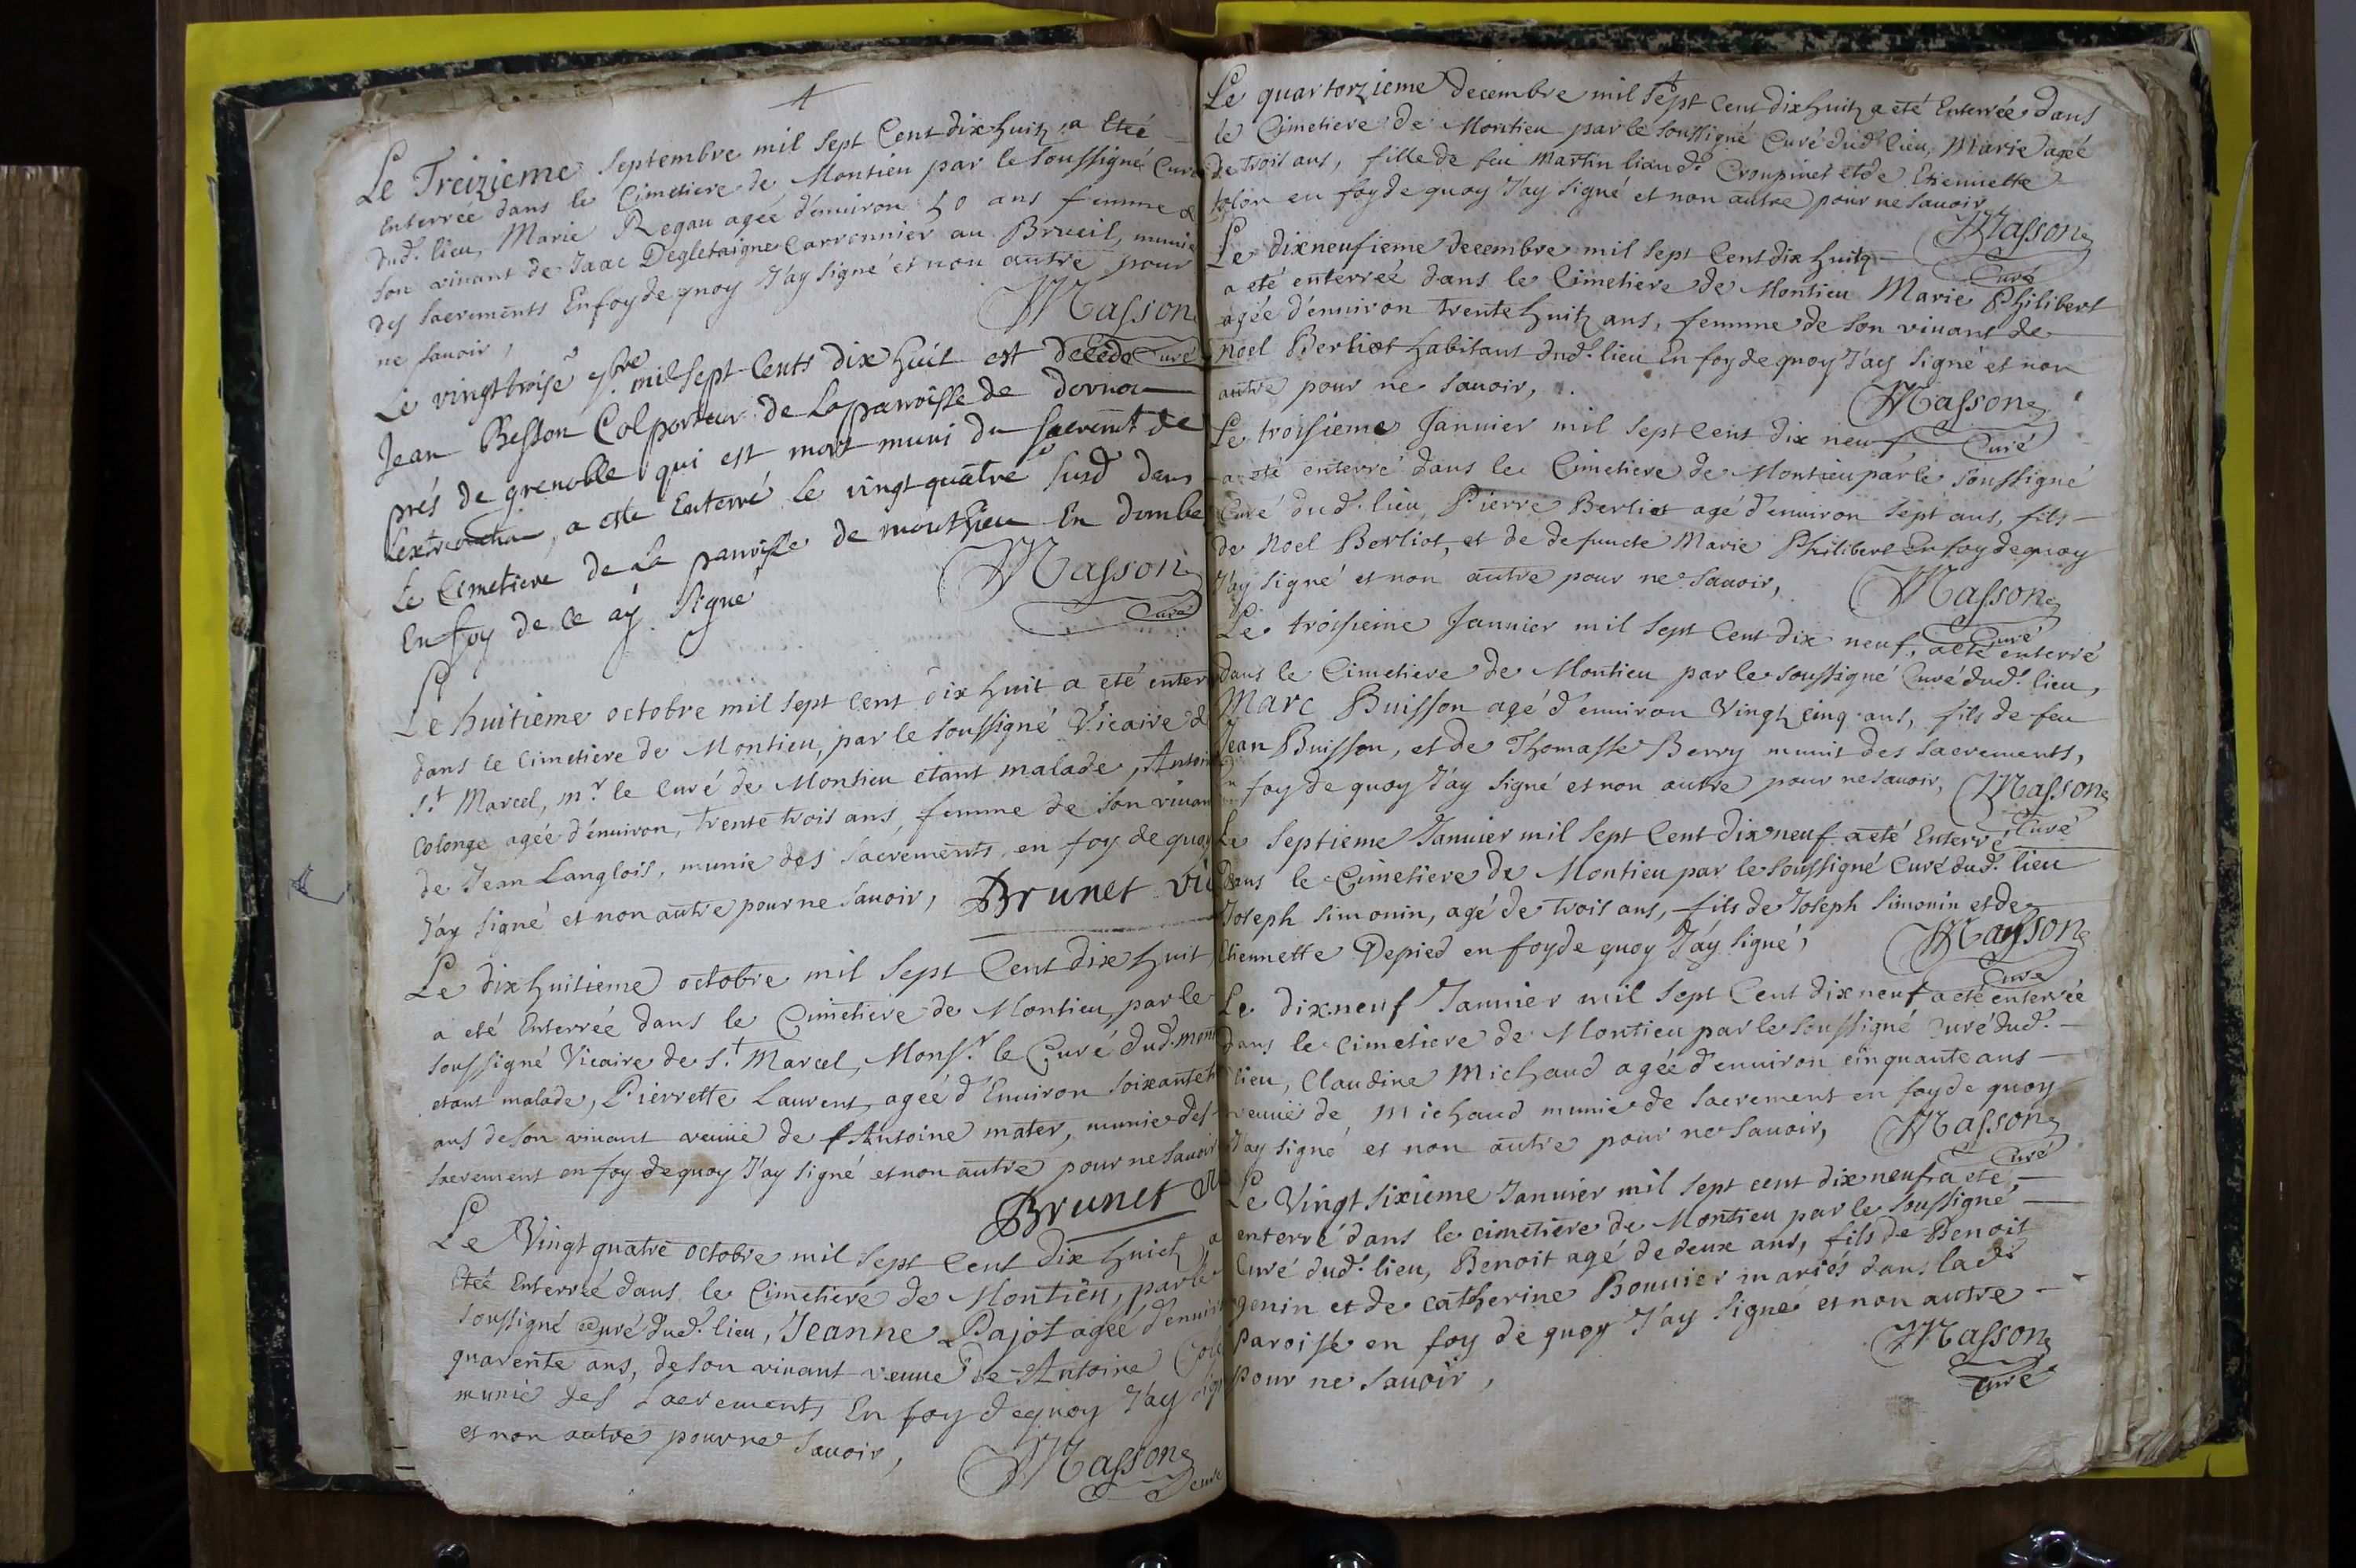 Le Treizieme Septembre mil sept Cent dix huit, a Eteé
Enterrée dans le Cimetiere de Montieu par le soussigné Curé
dud.t lieu, Marie Regau agée d'enuiron 50 ans femme de
son viuant de Isaac Degletaigne Carronnier au Brueil, munie
des sacrements En foy de quoy J'ay signé et non autre pour
ne sauoir,
Masson
Curé
Le vingt troise 7bre mil sept Cents dix huit est decédé
Jean Besson Colporteur de La parroisse de
prés de grenoble qui est mort muni du sacremt de
a este Enterré le vingt quatre susd dans
le Cimetiere de La parroisse de monthieu En dombe
En foy de ce ay signé
Masson
Curé
Le huitieme octobre mil sept cent dix huit a eté enter
dans le cimetiere de Montieu, par le soussigné Vicaire d
S.t Marcel, m.r le Curé de Montieu etant malade, Antoi
Colonge agée d'enuiron, trente trois ans, femme de son viuan
de Jean Langlois, munie des sacrements en foy de quoy
J'ay signé et non autre pour ne sauoir, Brunet vic
Le dix huitieme octobre mil sept Cent dix huit
a eté Enterrée dans le Cimetiere de Montieu, par le
soussigné Vicaire de S.t Marcel, Mons.r le Curé dud. mont
etant malade, Pierrette Laurent, agée d'Enuiron soixante
ans de son viuant veuue de f Antoine mater, munie des
sacrement en foy de quoy J'ay signé et non autre pour ne sauoir
Brunet vic
Le Vingt quatre octobre mil sept Cent dix huict, a
Eteé Enterrée dans le Cimetiere de Montieu, par le
soussigné Curé dud.t lieu, Jeanne Pajot agée d'enuir
quarente ans, de son viuant veuue de Antoine Col
munie des sacrements En foy de quoy J'ay sign
et non autre pour ne sauoir,
Masson
Curé
Le quartorzieme decembre mil sept Cent dix huit a eté Enterrée dans
le Cimetiere de Montieu par le soussigné Curé dud.t lieu, Marie agée
de trois ans, fille de feu Martin liaud d.t Croupinet et de Etiennette
tolon en foy de quoy J'ay signé et non autre pour ne sauoir
Masson
Curé
Le dixneufieme decembre mil sept Cent dix huit
a eté enterreé dans le Cimetiere de Montieu Marie Philibert
agée d'enuiron trente huit ans, femme de son viuant de
Noel Berliot habitant dud.t lieu En foy de quoy J'ay signé et non
autre pour ne sauoir,
Masson
Curé
Le troisieme Januier mil sept cent dix neuf
a eté enterré dans le Cimetiere de Montieu par le soussigné
Curé dud.t lieu, Pierre Berliot agé d'enuiron sept ans, fils
de Noel Berliot, et de defuncte Marie Philibert En foy de quoy
J'ay signé et non autre pour ne sauoir,
Masson
Curé
Le troisieme Januier mil sept Cent dix neuf, a eté enterré
dans le Cimetiere de Montieu par le soussigné Curé dud.t lieu,
Marc Buisson agé d'enuiron Vingt cinq ans, fils de feu
Jean Buisson, et de Thomasse Berry munit des sacrements,
En foy de quoy J'ay signé et non autre pour ne sauoir, Masson
Curé
Le septieme Januier mil sept Cent dixneuf a eté Enterré
Dans le Cimetiere de Montieu par le soussigné Curé dud.t lieu
Joseph simonin, agé de trois ans, fils de Joseph simonin et de
Etiennette Depied en foy de quoy J'ay signé,
Masson
Curé
Le dixneuf Januier mil sept Cent dixneuf a eté enterrée
dans le Cimetiere de Montieu par le soussigné Curé dud.t
lieu, Claudine Michaud agée d'enuiron cinquante ans
veuuë de Michaud munie de sacrement en foy de quoy
J'ay signé et non autre pour ne sauoir,
Masson
Curé
Le Vingt sixieme Januier mil sept cent dixneuf a eté,
enterré dans le cimetiere de Montieu par le soussigné
Curé dud.t lieu, Benoit agé de deux ans, fils de Benoit
genin et de catherine Bouuier mariés dans lad.e
paroisse en foy de quoy J'ay signé et non autre
pour ne sauoir,
Masson
Curé